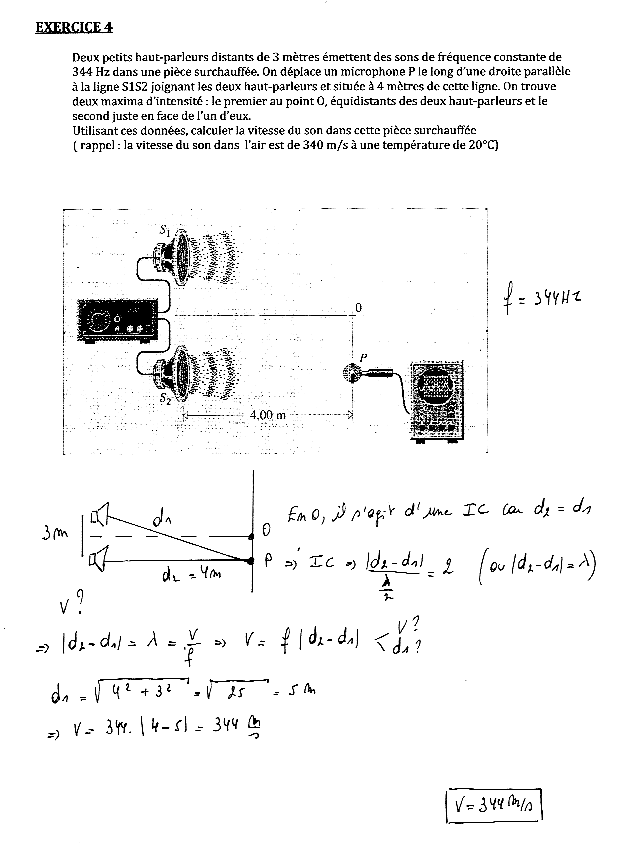 EXERCICE 4
Deux petits haut-parleurs distants de 3 mètres émettent des sons de fréquence constante de
344 Hz dans une pièce surchauffée. On déplace un microphone P le long d'une droite parallèle
à la ligne S1S2 joignant les deux haut-parleurs et située à 4 mètres de cette ligne. On trouve
deux maxima d'intensité : le premier au point O, équidistants des deux haut-parleurs et le
second juste en face de l'un d'eux.
Utilisant ces données, calculer la vitesse du son dans cette pièce surchauffée
( rappel : la vitesse du son dans l'air est de 340 m/s à une température de 20°C)
S1
0
f = 344Hz
P
S2
4,00 m
d1
3m
O
En O, il s'agit d'une IC car d2 = d1
d2 = 4m
P => IC => |d2-d1| / λ/2 = 2 (ou |d2-d1| = λ)
V ?
=> |d2-d1| = λ = V/f => V = f |d2-d1| < V? d1?
d1 = √4² + 3² = √25 = 5 m
=> V = 344. |4-5| = 344 m/s
V = 344 m/s